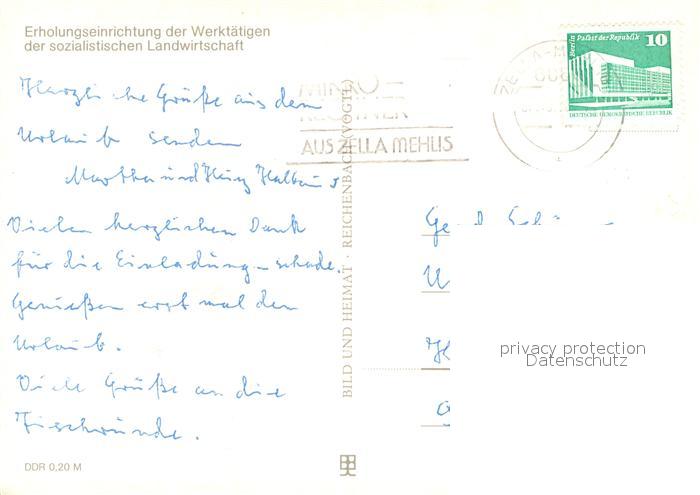 Erholungseinrichtung der Werktätigen
der sozialistischen Landwirtschaft
Herzliche Grüße aus dem
Urlaub senden
Martha und Heinz
Vielen herzlichen Dank
für die Einladung – schade.
Genießen erst mal den
Urlaub.
Viele Grüße an die
DDR 0,20 M
BILD UND HEIMAT · REICHENBACH (VOGTL)
MIKRO-
RECHNER
AUS ZELLA MEHLIS
Berlin Palast der Republik 10
DEUTSCHE DEMOKRATISCHE REPUBLIK
privacy protection
Datenschutz